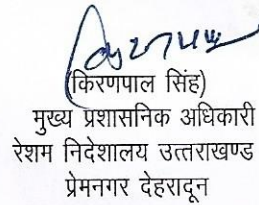 (किरणपाल सिंह)
मुख्य प्रशासनिक अधिकारी
रेशम निदेशालय उत्तराखण्ड
प्रेमनगर देहरादून